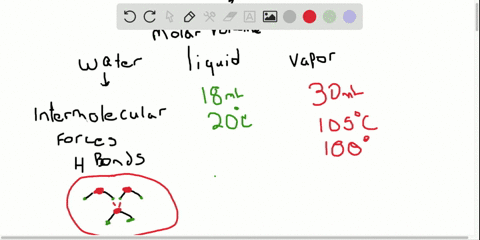 Molar Volume
Water liquid Vapor
18mL 30mL
Intermolecular 20°C 105°C
Forces 100°
H Bonds